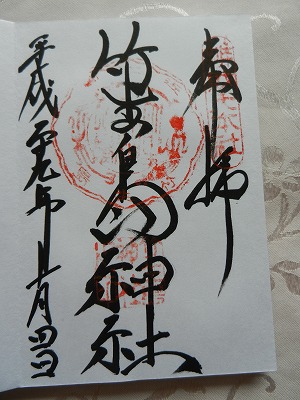 奉拝
竹生島神社
平成二九年十一月四日